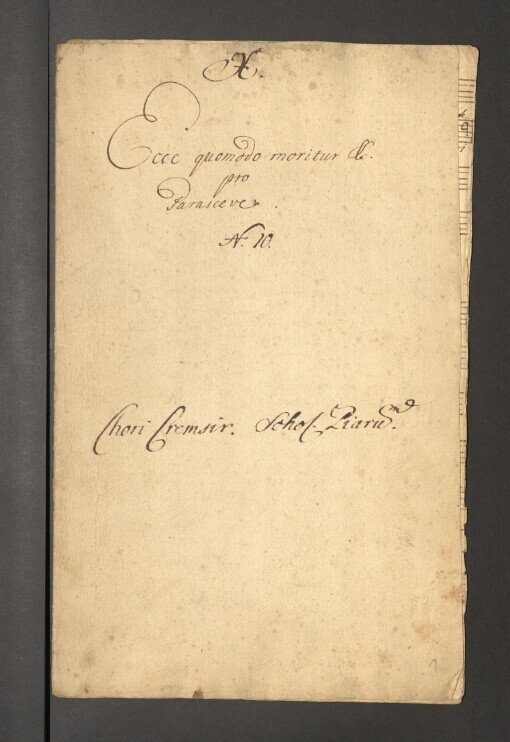 X.
Ecce quomodo moritur &c.
pro
Parasceve.
N. 10.
Chori Cremsir. Schol. Piarū.
1